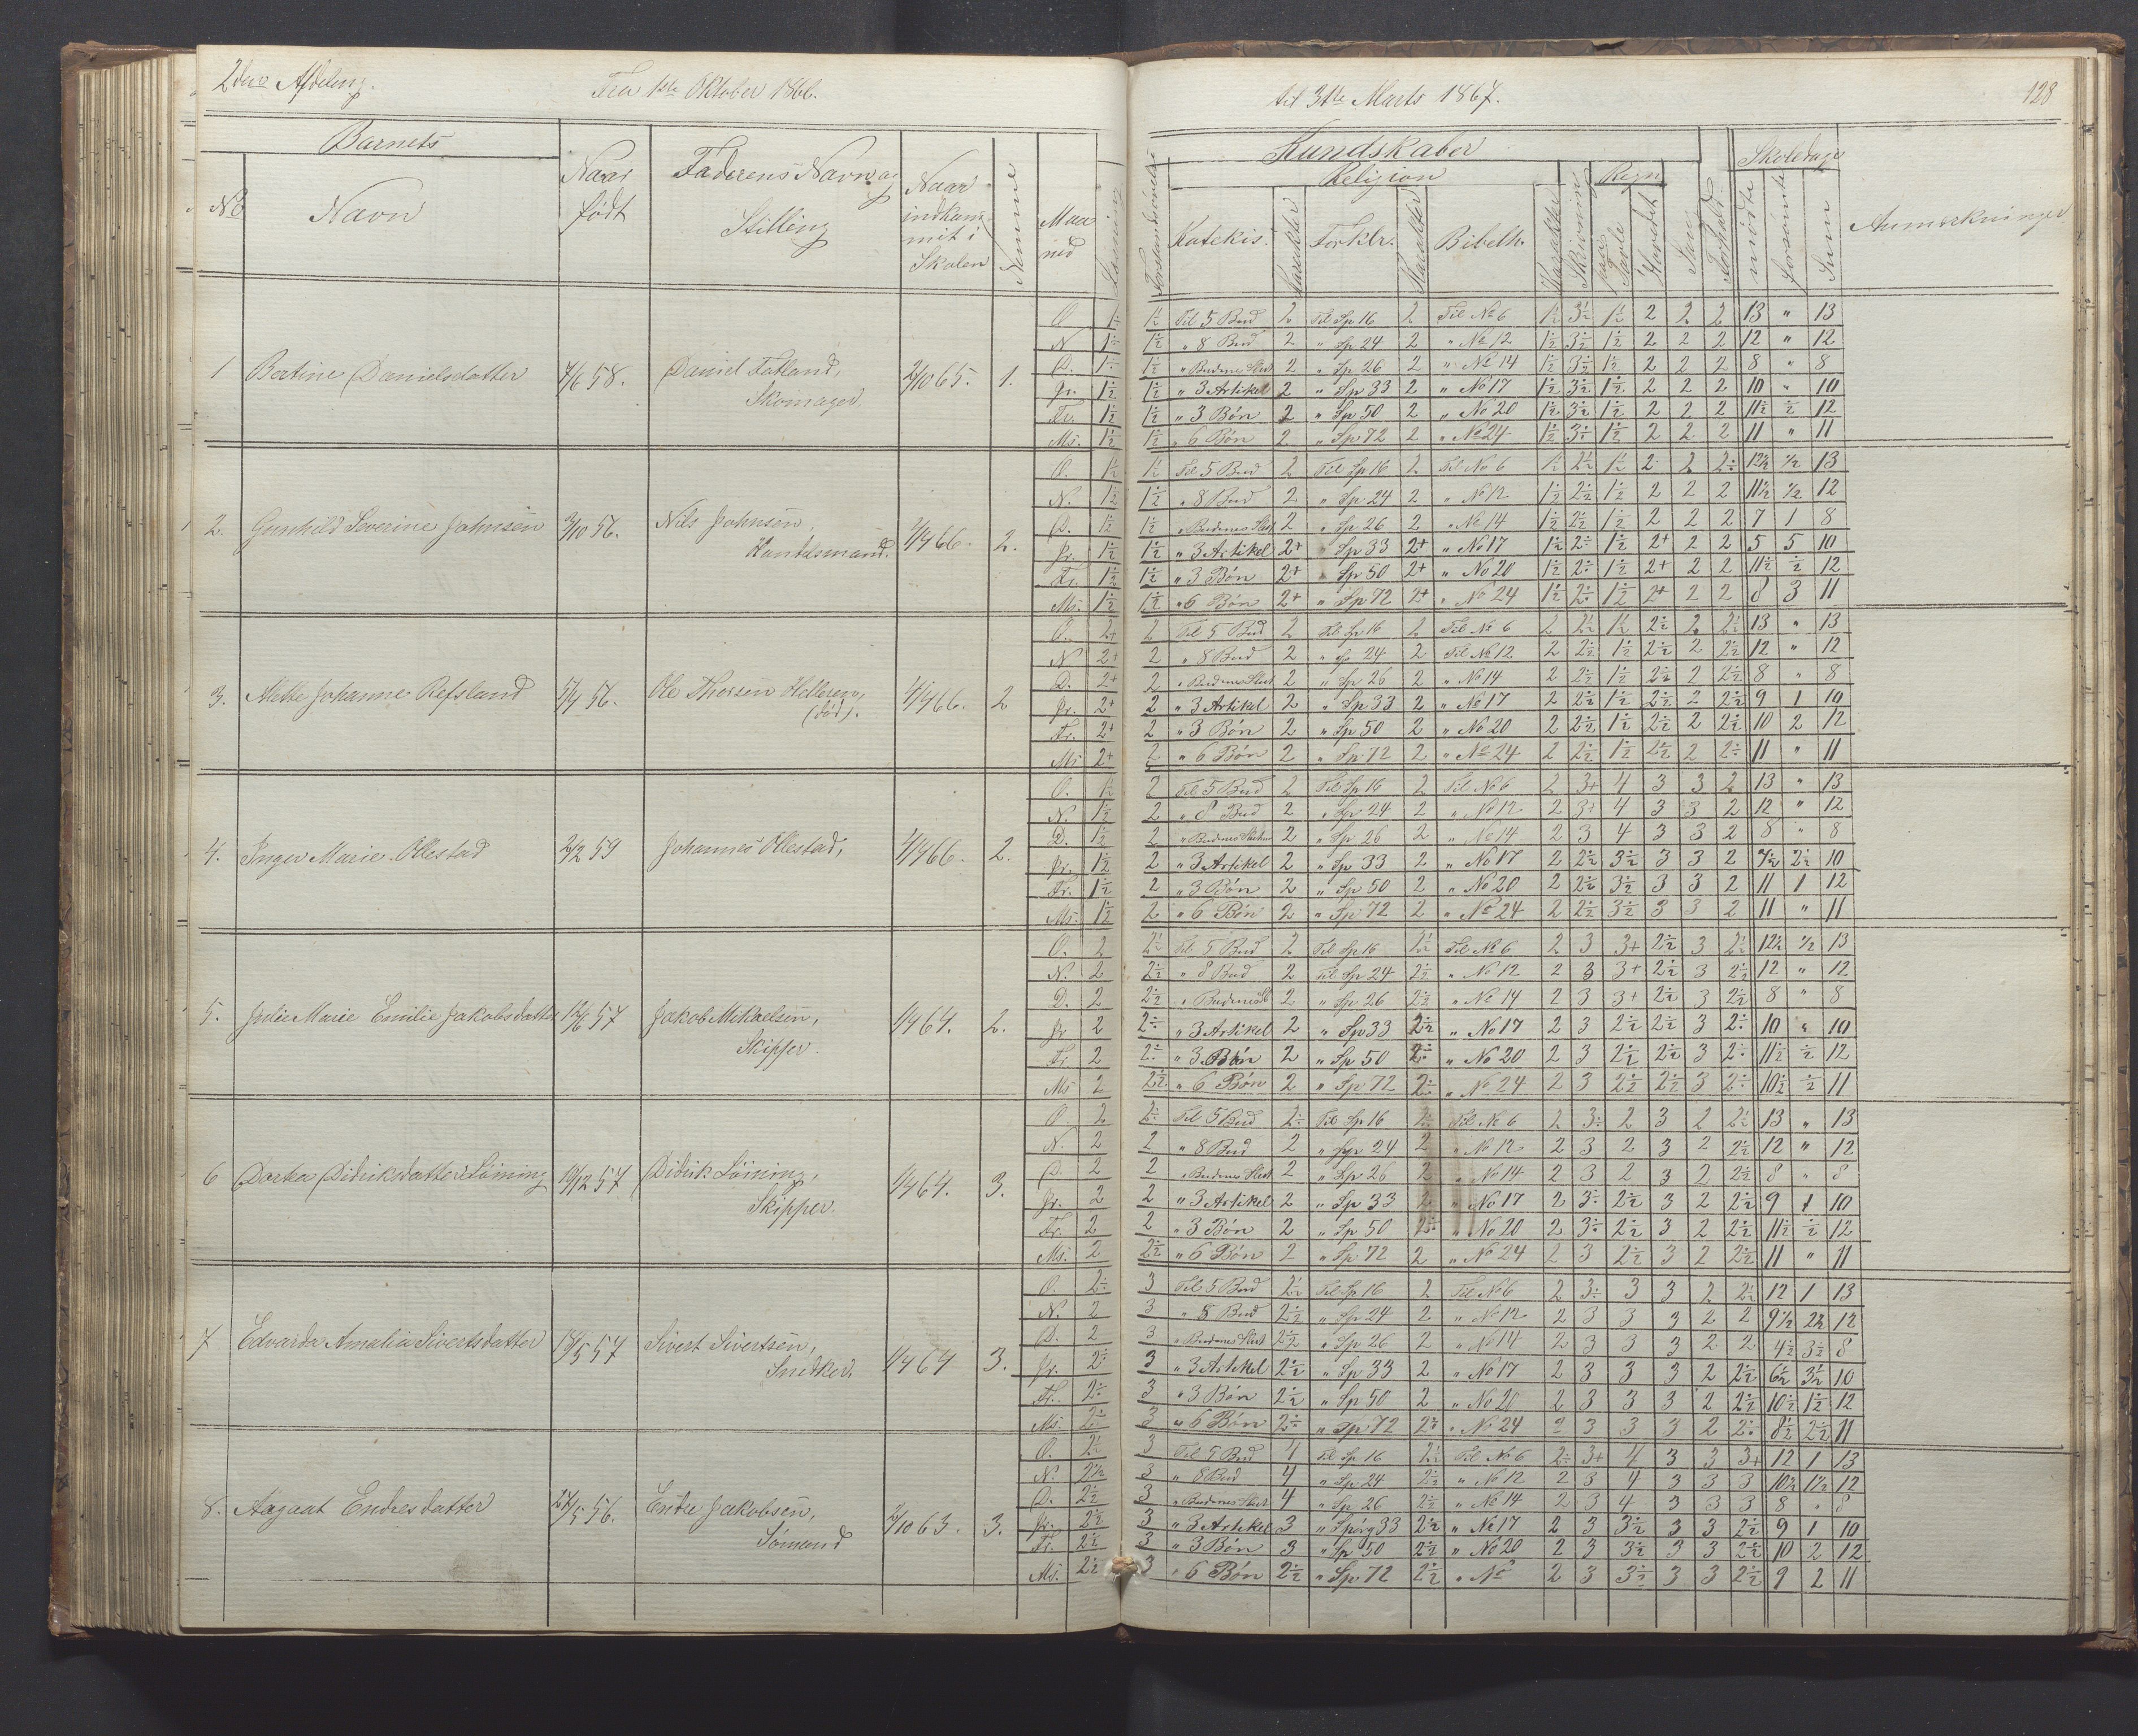 2den Afdeling.
Fra 1ste Oktober 1866.
til 31te Marts 1867.
128
Barnets
No
Navn
Naar født
Faderens Navn og Stilling
Naar indkommet i Skolen
Nemme
Maaned
Læsning
Forstandsøvelse
Kundskaber
Religion
Katekis.
Karakter
Forklr.
Karakter
Bibelh.
Karakter
Skrivning
Regn.
Tavle
Hovedet
Sang
Forhold
Skoledage
mødte
forsømte
Sum
Anmærkninger
1 Bertine Danielsdatter 7/6 58. Daniel Fatland, Skomager 2/10 65. 1.
O. 1½ 1½ Til 5 Bud 2 Til Sp 16 2 Til No 6 1½ 3½ 1½ 2 2 2 13 " 13
N. 1½ 1½ " 8 Bud 2 " Sp 24 2 " No 12 1½ 3½ 1½ 2 2 2 12 " 12
D. 1½ 1½ " Budenes Slut 2 " Sp 26 2 " No 14 1½ 3½ 1½ 2 2 2 8 " 8
Jr. 1½ 1½ " 3 Artikel 2 " Sp 33 2 " No 17 1½ 3½ 1½ 2 2 2 10 " 10
Fr. 1½ 1½ " 3 Bøn 2 " Sp 50 2 " No 20 1½ 3½ 1½ 2 2 2 11½ ½ 12
Ms. 1½ 1½ " 6 Bøn 2 " Sp 72 2 " No 24 1½ 3½ 1½ 2 2 2 11 " 11
2. Gunhild Severine Johnsen 3/10 56. Nils Johnsen, Handelsmand. 1/4 66. 2.
O. 1½ 1½ Til 5 Bud 2 Til Sp 16 2 Til No 6 1½ 2½ 1½ 2 2 2÷ 12½ ½ 13
N. 1½ 1½ " 8 Bud 2 " Sp 24 2 " No 12 1½ 2½ 1½ 2 2 2 11½ ½ 12
D. 1½ 1½ " Budenes Slut 2 " Sp 26 2 " No 14 1½ 2½ 1½ 2 2 2 7 1 8
Jr. 1½ 1½ " 3 Artikel 2+ " Sp 33 2+ " No 17 1½ 2÷ 1½ 2+ 2 2 5 5 10
Fr. 1½ 1½ " 3 Bøn 2+ " Sp 50 2+ " No 20 1½ 2÷ 1½ 2+ 2 2 11½ ½ 12
Ms. 1½ 1½ " 6 Bøn 2+ " Sp 72 2+ " No 24 1½ 2÷ 1½ 2+ 2 2 8 3 11
3. Mette Johanne Refsland 5/4 56. Ole Thorsen Hetleren, (død). 1/4 66. 2
O. 2+ 2 Til 5 Bud 2 Til Sp 16 2 Til No 6 2 2½ 1½ 2½ 2 2½ 13 " 13
N. 2+ 2 " 8 Bud 2 " Sp 24 2 Til No 12 2 2½ 1½ 2½ 2 2½ 12 " 12
D. 2+ 2 " Budenes Slut 2 " Sp 26 2 " No 14 2 2½ 1½ 2½ 2 2½ 8 " 8
Jr. 2+ 2 " 3 Artikel 2 " Sp 33 2 " No 17 2 2½ 1½ 2½ 2 2½ 9 1 10
Fr. 2+ 2 " 3 Bøn 2 " Sp 50 2 " No 20 2 2½ 1½ 2½ 2 2½ 10 2 12
Ms 2+ 2 " 6 Bøn 2 " Sp 72 2 " No 24 2 2½ 1½ 2½ 2 2÷ 11 " 11
4. Inger Marie Ollestad 2/2 59 Johannes Ollestad, 1/4 66. 2.
O. 1½ 2 Til 5 Bud 2 Til Sp 16 2 Til No 6 2 3+ 4 3 3 2 13 " 13
N. 1½ 2 " 8 Bud 2 " Sp 24 2 " No 12 2 3+ 4 3 3 2 12 " 12
D. 1½ 2 " Budenes Slutn 2 " Sp 26 2 " No 14 2 3 4 3 3 2 8 " 8
Jr. 1½ 2 " 3 Artikel 2 " Sp 33 2 " No 17 2 2½ 3½ 3 3 2 7½ 2½ 10
Fr. 1½ 2 " 3 Bøn 2 " Sp 50 2 " No 20 2 2½ 3½ 3 3 2 11 1 12
Ms. 1½ 2 " 6 Bøn 2 " Sp 72 2 " No 24 2 2½ 3½ 3 3 2 11 " 11
5. Julie Marie Emilie Jakobsdatter 12/6 57 Jakob Mikaelsen, Skipper. 1/4 64. 2.
O. 2 2½ Til 5 Bud 2 Til Sp 16 2½ Til No 6 2 3 3+ 2½ 3 2½ 12½ ½ 13
N. 2 2½ " 8 Bud 2 Til Sp 24 2½ " No 12 2 3 3+ 2½ 3 2½ 12 " 12
D. 2 2½ " Budenes Sl 2 " Sp 26 2½ " No 14 2 3 3+ 2½ 3 2½ 8 " 8
Jr 2 2÷ " 3 Artikel 2 " Sp 33 2½ " No 17 2 3 2½ 2½ 3 2÷ 10 " 10
Fr. 2 2÷ " 3 Bøn 2 " Sp 50 2÷ " No 20 2 3 2½ 2½ 3 2÷ 11½ ½ 12
Ms 2 2½ " 6 Bøn 2 " Sp 72 2÷ " No 24 2 3 2½ 2½ 3 2÷ 10½ ½ 11
6 Dortea Didriksdatter Løining 19/12 57 Didrik Löining, Skipper. 1/4 64. 3.
O. 2 2÷ Til 5 Bud 2÷ Til Sp 16 Til No 6 2 3÷ 2 3 2 2½ 13 " 13
N. 2 2 " 8 Bud 2 " Sp 24 2 " No 12 2 3 2 3 2 2½ 12 " 12
D. 2 2 " Budenes Slut 2 " Sp 26 2 " No 14 2 3 2 3 2 2½ 8 " 8
Jr. 2 2 " 3 Artikel 2 " Sp 33 " No 17 2 3÷ 2½ 3 2 2½ 9 1 10
Fr. 2 2 " 3 Bøn 2 " Sp 50 2÷ " No 20 2 3÷ 2½ 3 2 2½ 11½ ½ 12
Ms. 2 2½ " 6 Bøn 2 " Sp 72 2 " No 24 2 3 2½ 3 2 2½ 11 " 11
7 Edvarda Amalia Sivertsdatter 18/5 57 Sivert Sivertsen, Snedker. 1/4 64 3.
O. 2÷ 3 Til 5 Bud 2½ Til Sp 16 2 Til No 6 2 3÷ 3 3 2 2½ 12 1 13
N. 2 3 " 8 Bud 2½ " Sp 24 2 " No 12 2 3 3 3 2 2 9½ 2½ 12
D. 2 3 " Budenes Slut 2½ " Sp 26 2 " No 14 2 3 3 3 2 2 4½ 3½ 8
Jr. 2÷ 3 " 3 Artikel 2½ " Sp 33 2 " No 17 2 3 3 3 2 2½ 6½ 3½ 10
Fr. 2÷ 3 " 3 Bøn 2½ " Sp 50 2 " No 20 2 3 3 3 2 2½ 10½ 1½ 12
Ms. 2÷ 3 " 6 Bøn 2÷ " Sp 72 2÷ " No 24 2 3 3 3 2 2÷ 8½ 2½ 11
8. Aagaat Endresdatter 24/5 56. Endre Jakobsen, Sømand 2/10 63. 3.
O. 2½ 3 Til 5 Bud 4 Til Sp 16 2½ Til No 6 2÷ 3+ 4 3 3 3+ 12 1 13
N. 2½ 3 " 8 Bud 4 " Sp 24 2½ " No 12 2 3 4 3 3 3 10½ 1½ 12
D. 2½ 3 " Budenes Slut 4 " Sp 26 2½ " No 14 2 3 4 3 3 3 8 " 8
Jr. 2½ 3 " 3 Artikel 3 " Spörg 33 2½ " No 17 2 3 3½ 3 3 2½ 9 1 10
Fr. 2½ 3 " 3 Bøn 3 " Sp 50 2½ " No 20 2 3 3½ 3 3 2½ 10 2 12
Ms. 2½ 3 " 6 Bøn 2½ " Sp 72 2½ " No 2 3 3½ 3 3 2½ 9 2 11